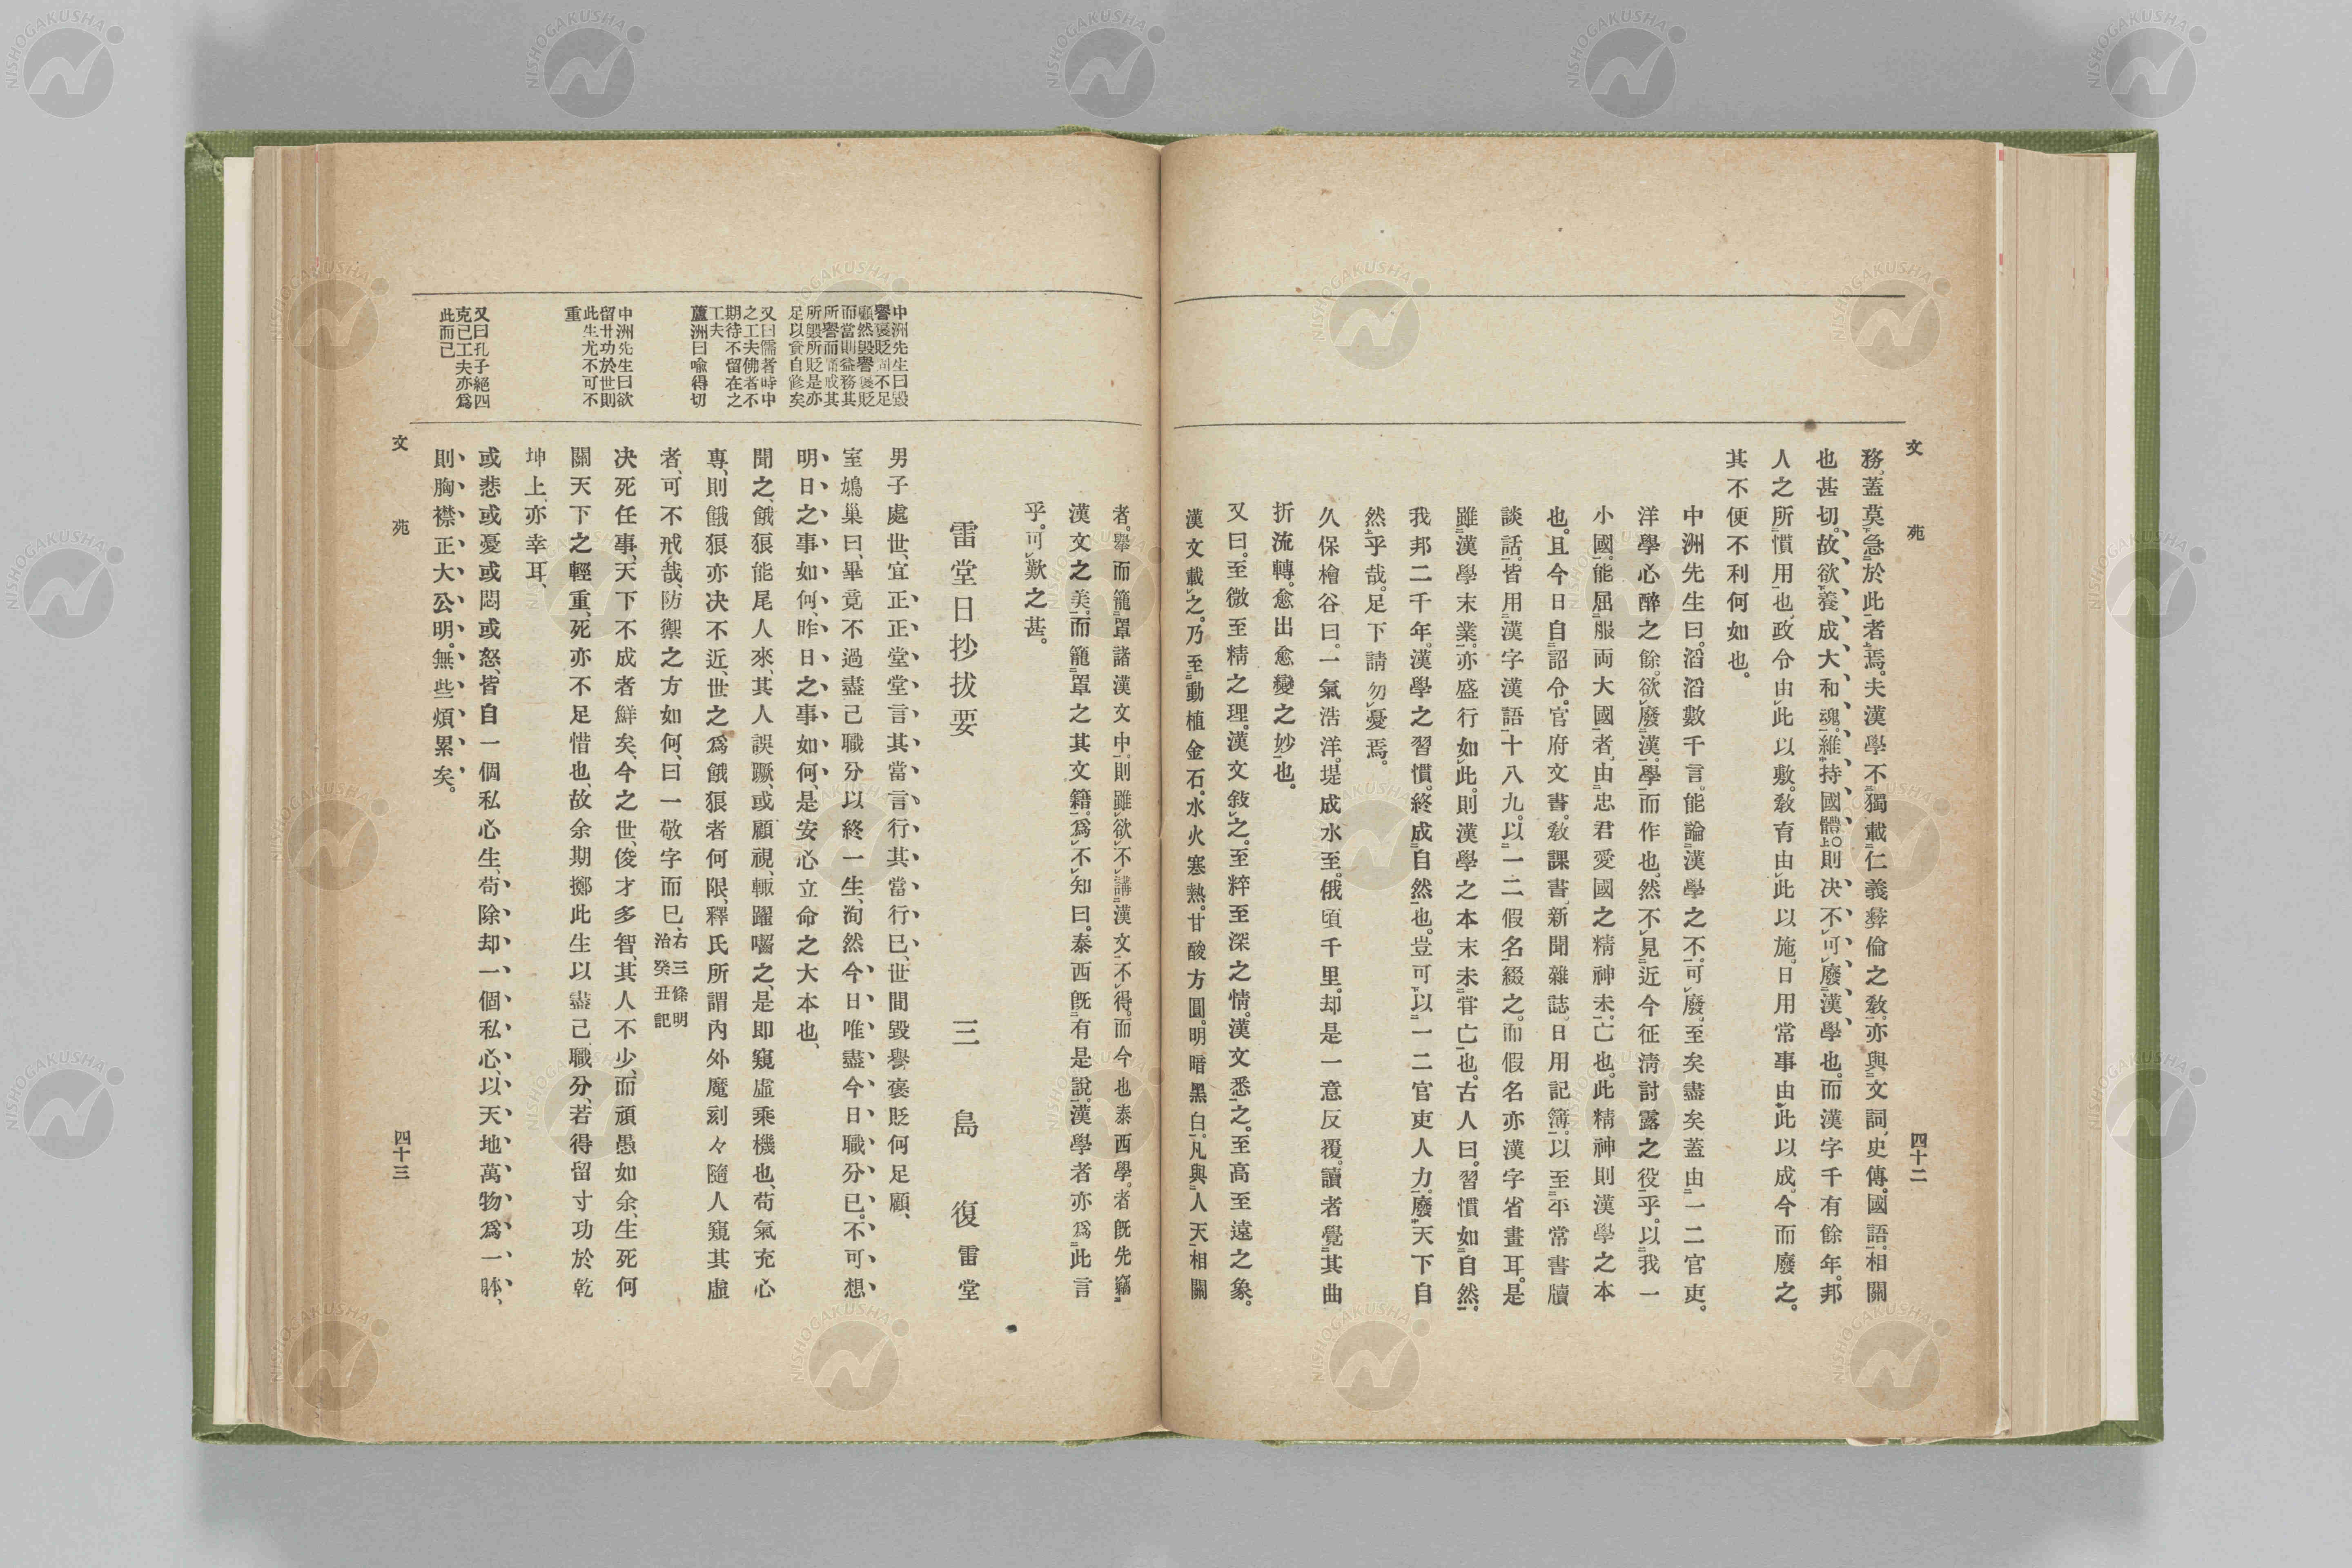 文苑
四十二
務。蓋莫急於此者焉。夫漢學不獨載仁義彝倫之敎、亦與文詞、史傳。國語。相關
也甚切。故欲養成大和魂。維持國體。則決不可廢漢學也。而漢字千有餘年。邦
人之所慣用也、政令由此以敷。敎育由此以施。日用常事由此以成。今而廢之。
其不便不利何如也。
中洲先生曰。滔滔數千言。能論漢學之不可廢。至矣盡矣蓋由一二官吏。
洋學心醉之餘。欲廢漢學而作也。然不見近今征淸討露之役乎。以我一
小國。能屈服両大國者、由忠君愛國之精神未亡也。此精神則漢學之本
也。且今日自詔令。官府文書。敎課書、新聞雜誌。日用記簿。以至平常書牘
談話。皆用漢字漢語十八九。以一二假名綴之。而假名亦漢字省畫耳。是
雖漢學末業。亦盛行如此。則漢學之本末未甞亡也。古人曰。習慣如自然。
我邦二千年。漢學之習慣。終成自然也。豈可以一二官吏人力。廢天下自
然乎哉。足下請勿憂焉。
久保檜谷曰。一氣浩洋。堤成水至。俄頃千里。却是一意反覆。讀者覺其曲
折流轉。愈出愈變之妙也。
又曰。至微至精之理。漢文敍之。至粹至深之情。漢文悉之。至高至遠之象。
漢文載之。乃至動植金石。水火寒熱。甘酸方圓。明暗黑白。凡與人天相關
者。擧而籠罩諸漢文中。則雖欲不講漢文不得。而今也泰西學者既先竊
漢文之美。而籠罩之其文籍。爲不知曰。泰西既有是說。漢學者亦爲此言
乎。可歎之甚。
雷堂日抄抜要　三島復雷堂
男子處世、宜正正堂堂、言其當言、行其當行已、世間毀譽褒貶何足顧、
室鳩巢曰、畢竟不過盡己職分以終一生、洵然今日唯盡今日職分已。不可想
明日之事如何、昨日之事如何、是安心立命之大本也、
聞之、餓狼能尾人來、其人誤蹶、或顧視、輙躍囓之、是即窺虛乘機也、苟氣充心
專、則餓狼亦決不近、世之爲餓狼者何限、釋氏所謂內外魔刻々隨人窺其虛
者、可不戒哉、防禦之方如何、曰一敬字而已、右三條明治癸丑記
決死任事、天下不成者鮮矣、今之世、俊才多智、其人不少、而頑愚如余、生死何
關天下之輕重、死亦不足惜也、故余期擲此生以盡己職分、若得留寸功於乾
坤上、亦幸耳、
或悲或憂或悶或怒、皆自一個私心生、苟除却一個私心、以天地萬物爲一躰、
則胸襟正大公明。無些煩累矣。
中洲先生曰毀
譽褒貶固不足
顧然毀譽褒貶
而當則益務其
所譽而痛戒其
所毀所貶是亦
足以資自修矣
又曰儒者時中
之工夫佛者不
期待不留在之
工夫
蘆洲曰喩得切
中洲先生曰欲
留廿功於世則
此生尤不可不
重
又曰孔子絕四
克己工夫亦爲
此而已
文苑
四十三